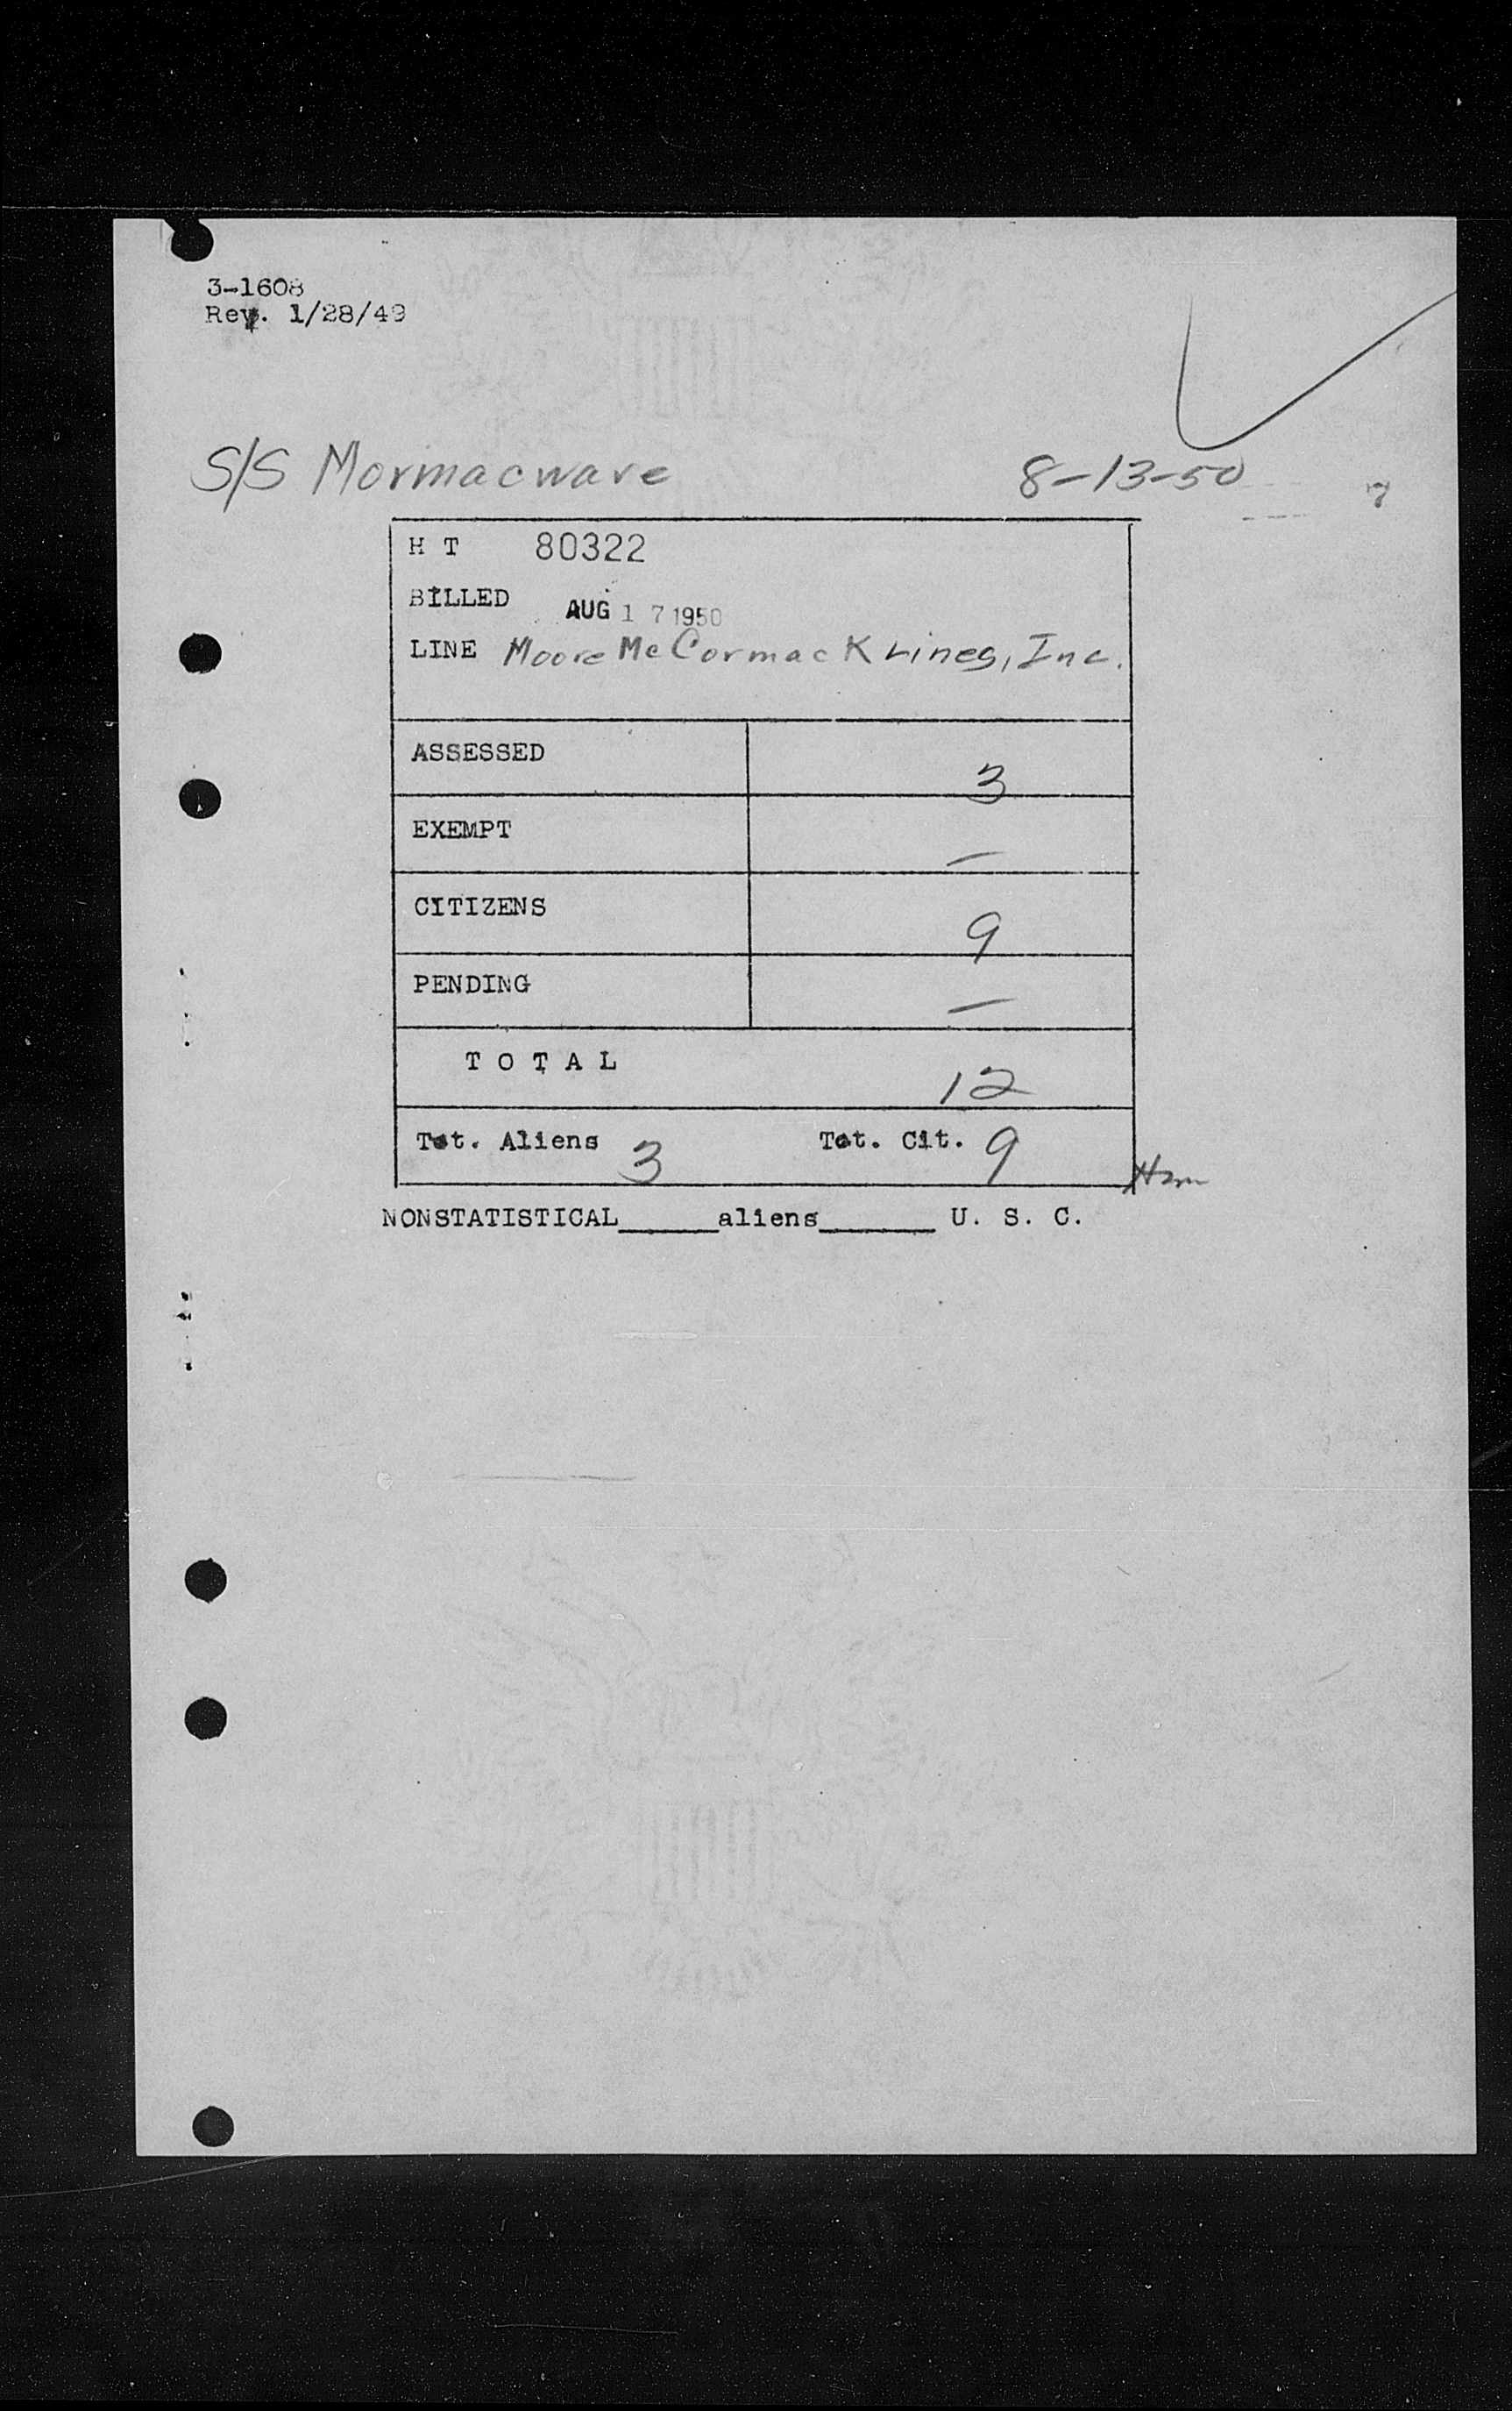 3-1608
Rev. 1/28/49
S/S Mormacwave 8-13-50
H T 80322
BILLED AUG 17 1950
LINE Moore McCormack Lines, Inc.
ASSESSED 3
EXEMPT —
CITIZENS 9
PENDING —
T O T A L 12
Tot. Aliens 3 Tot. Cit. 9
NONSTATISTICAL______aliens_______ U. S. C.